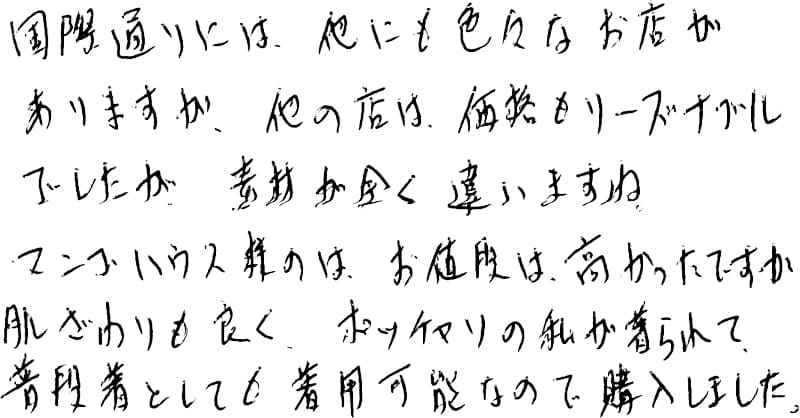 国際通りには、他にも色々なお店が
ありますが、他の店は、価格もリーズナブル
でしたが 素材が全く違いますね
マンゴハウス様のは、お値段は、高かったですが
肌ざわりも良く、ポッチャリの私が着られて、
普段着としても着用可能なので購入しました。